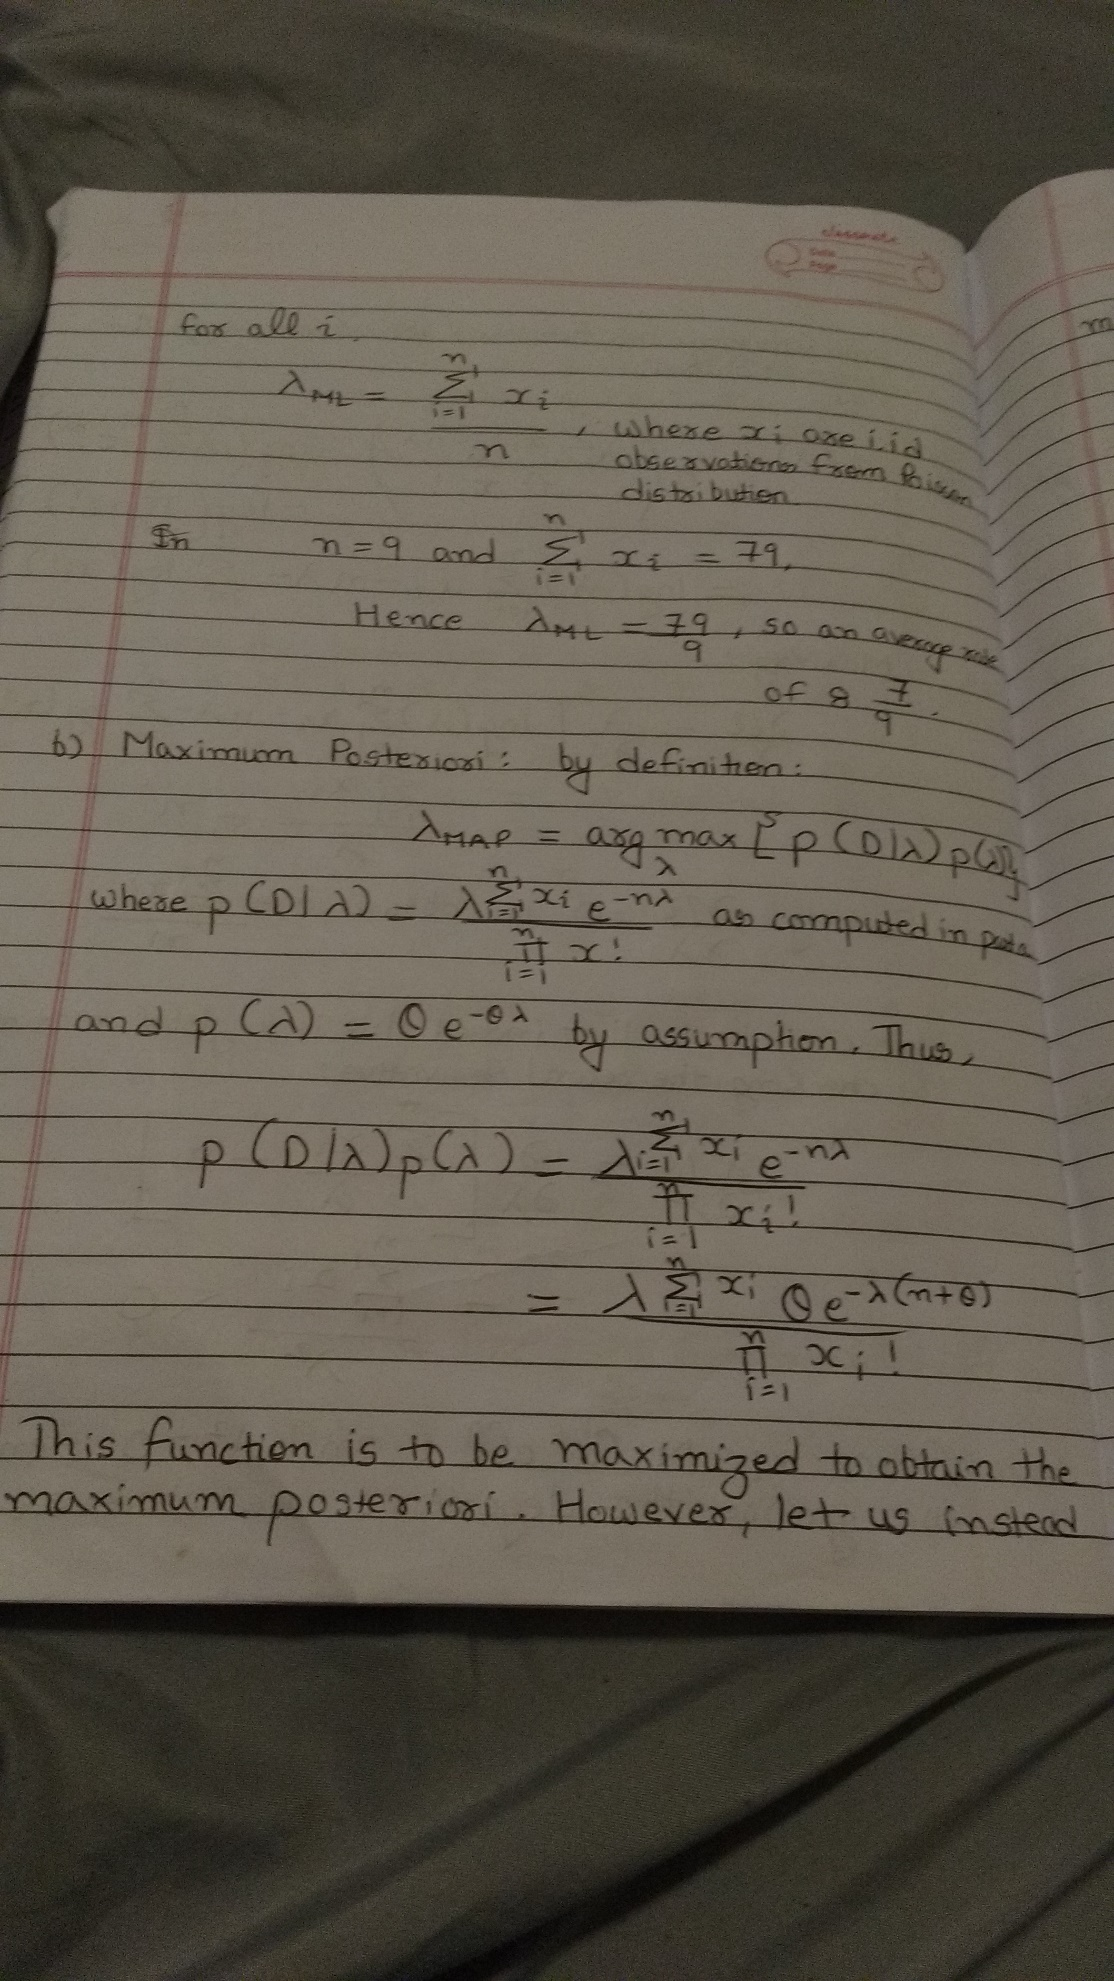 classmate
Date
Page
for all i
λ_ML = Σ_{i=1}^{n} x_i / n , where xi are i.id
observations from Poisson
distribution
In n = 9 and Σ_{i=1}^{n} x_i = 79,
Hence λ_ML = 79/9 , so an average rate
of 8 7/9 .
b) Maximum Posteriori : by definition :
λ_MAP = arg max_λ [ p (D|λ) p(λ)]
where p (D|λ) = λ^{Σ_{i=1}^{n} x_i} e^{-nλ} / Π_{i=1}^{n} x! as computed in
and p (λ) = θ e^{-θλ} by assumption. Thus,
p (D|λ) p(λ) = λ^{Σ_{i=1}^{n} x_i} e^{-nλ} / Π_{i=1}^{n} x_i!
= λ^{Σ_{i=1}^{n} x_i} θ e^{-λ(n+θ)} / Π_{i=1}^{n} x_i!
This function is to be maximized to obtain the
maximum posteriori. However, let us instead
m